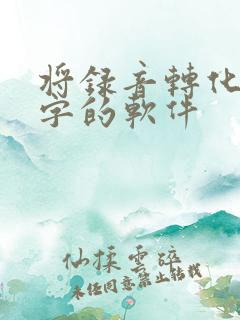 将錄音轉化
字的軟件
仙揉雲碎
未任同意禁止转载